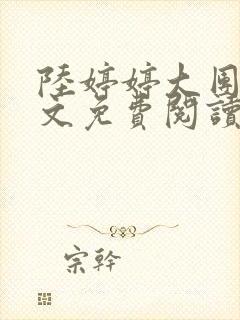 陸婷婷大團
文免費閱讀
宗幹